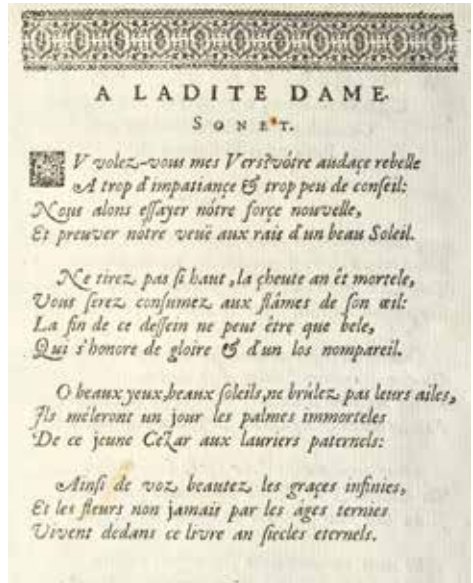 A LADITE DAME.
SONET.
OV volez-vous mes Vers? vótre audaçe rebelle
A trop d'impatiançe & trop peu de conſeil:
Nous alons eſſayer nótre forçe nouvelle,
Et preuver nótre veuë aux rais d'un beau Soleil.
Ne tirez pas ſi haut, la çheute an êt mortele,
Vous ſerez conſumez aux flâmes de ſon œil:
La fin de ce deſſein ne peut être que bele,
Qui s'honore de gloire & d'un los nompareil.
O beaux yeux, beaux ſoleils, ne brûlez pas leurs ailes,
Ils méleront un jour les palmes immorteles
De ce jeune Cezar aux lauriers paternels:
Ainſi de voz beautez les graçes infinies,
Et les fleurs non jamais par les âges ternies
Vivent dedans ce livre an ſiecles eternels.